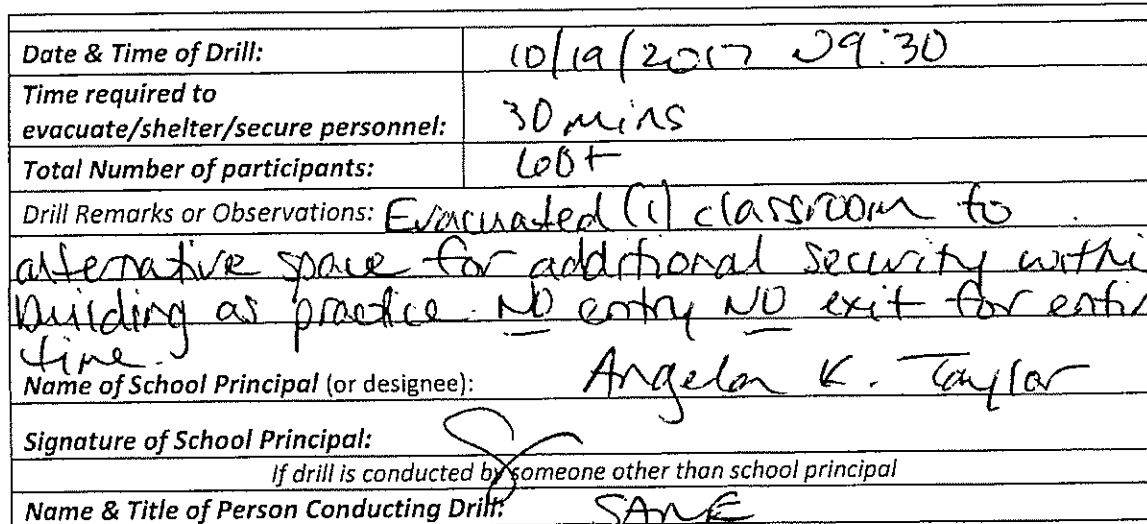 Date & Time of Drill: 10/19/2017 09:30
Time required to
evacuate/shelter/secure personnel: 30 mins
Total Number of participants: 600+
Drill Remarks or Observations: Evacuated (1) classroom to
alternative space for additional security withi
building as practice. NO entry NO exit for entir
time.
Name of School Principal (or designee): Angela K. Taylor
Signature of School Principal:
If drill is conducted by someone other than school principal
Name & Title of Person Conducting Drill: SAME